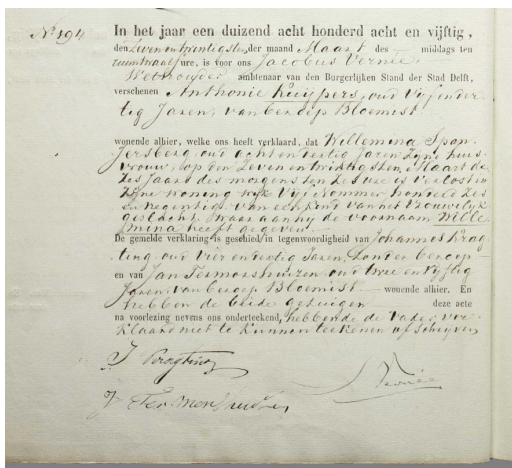 No 194
In het jaar een duizend acht honderd acht en vijftig,
den Zeven en twintigsten, der maand Maart des middags ten
ure, is voor ons Jacobus Vernée
Wethouder ambtenaar van den Burgerlijken Stand der Stad Delft,
verschenen Anthonie Kuijpers, oud Vijf en der-
tig Jaren, van beroep Bloemist
wonende alhier, welke ons heeft verklaard, dat Willemina Span
jersberg, oud acht en dertig Jaren Zijne huis-
vrouw, op den Zeven en twintigsten Maart de
zes Jaars des morgens ten Zes ure is verlost in
Zijne woning wijk Vijf Nommer honderd Zes
en negentig van een kind van het Vrouwelijk
geslacht, waar aan hij de voornaam Wille
mina heeft gegeven
De gemelde verklaring is geschied in tegenwoordigheid van Johannes Krag
ting, oud Vier en dertig Jaren, Zonder beroep
en van Jan Termorshuizen, oud twee en Vijftig
Jaren, van beroep Bloemist wonende alhier. En
hebben de beide getuigen deze acte
na voorlezing nevens ons onderteekend, hebbende de Vader ver-
klaard niet te kunnen teekenen of schrijven
J Kragting
Vernée
J Ter Morshuizen